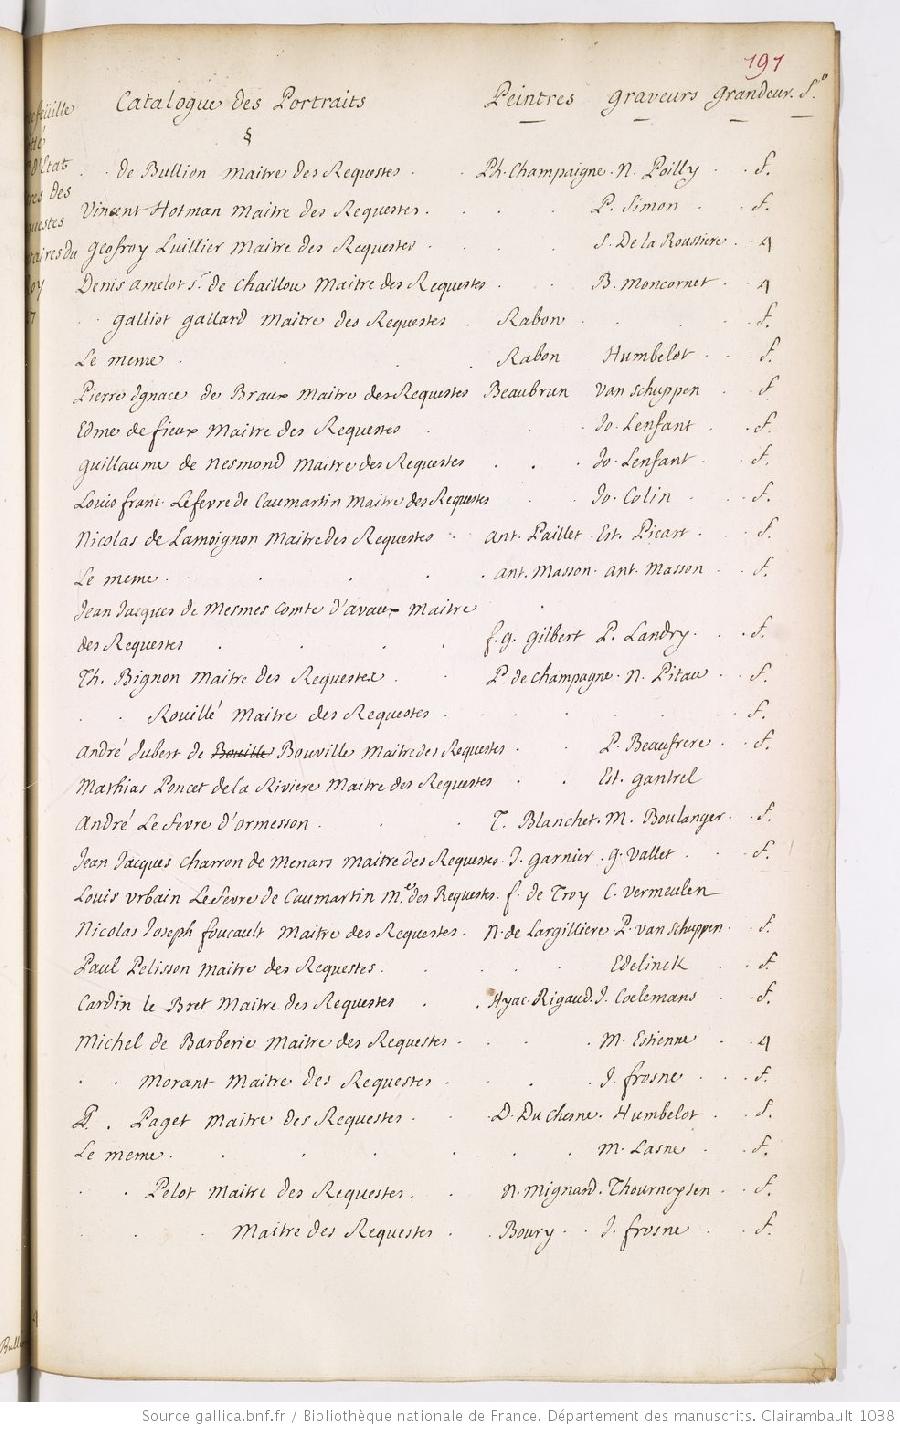 191
Catalogue des Portraits Peintres graveurs grandeur. f.º
§
de Bullion maitre des Requestes Ph. Champaigne. N. Poilly f.
Vincent Hotman maitre des Requestes. P. Simon f.
geofroy Luillier maitre des Requestes S. De la Roussiere. 4
Denis amelot s.r de Chaillou maitre des Requestes B. moncornet 4
galliot gallard maitre des Requestes Rabon f.
Le meme Rabon Humbelot f.
Pierre Ignace de Braux maitre des Requestes Beaubrun van Schuppen f
Edme de fieux maitre des Requestes Jo. Lenfant f.
guillaume de nesmond maitre des Requestes Jo. Lenfant f.
Louis franc. Lefevre de Caumartin maitre des Requestes Jo. Colin f.
Nicolas de Lamoignon maitre des Requestes ant. Paillet Est. Picart f.
Le meme. ant. Masson. ant. Masson f.
Jean Jacques de mesmes comte d'avaux maitre
des Requestes f. g. gilbert P. Landry. f.
Th. Bignon maitre des Requestes. P. de champagne. N. Pitau f.
Rouillé maitre des Requestes f.
andré Jubert de Bouville maitre des Requestes P. Beaufrere f.
Mathias Poncet de la Riviere maitre des Requestes Est. gantrel
André Le fevre d'ormesson. T. Blanchet. M. Boulanger. f.
Jean Jacques Charron de menars maitre des Requestes J. garnier g. Vallet f.
Louis Urbain Lefevre de Caumartin M.e des Requestes. f. de Troy C. vermeulen
Nicolas Joseph foucault maitre des Requestes. N. de Largilliere P. van schuppen. f.
Paul Pelisson maitre des Requestes. Edelinck f.
Cardin le Bret maitre des Requestes Hyac. Rigaud. J. Coelemans f.
Michel de Barberie maitre des Requestes M. Estienne 4
morant maitre des Requestes J. frosne f.
P. Paget maitre des Requestes D. Du chesne. Humbelot f.
Le meme. M. Lasne f.
Pelot maitre des Requestes. N. mignard. Thourneysen f.
maitre des Requestes Boury J. frosne f.
Source gallica.bnf.fr / Bibliothèque nationale de France. Département des manuscrits. Clairambault 1038